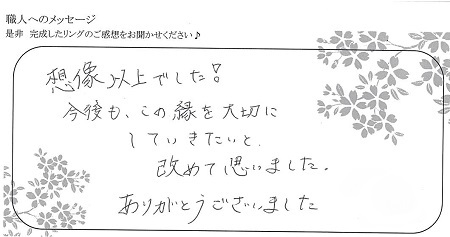 職人へのメッセージ
是非 完成したリングのご感想をお聞かせください♪
想像以上でした!
今後も、この縁を大切に
していきたいと、
改めて思いました。
ありがとうございました